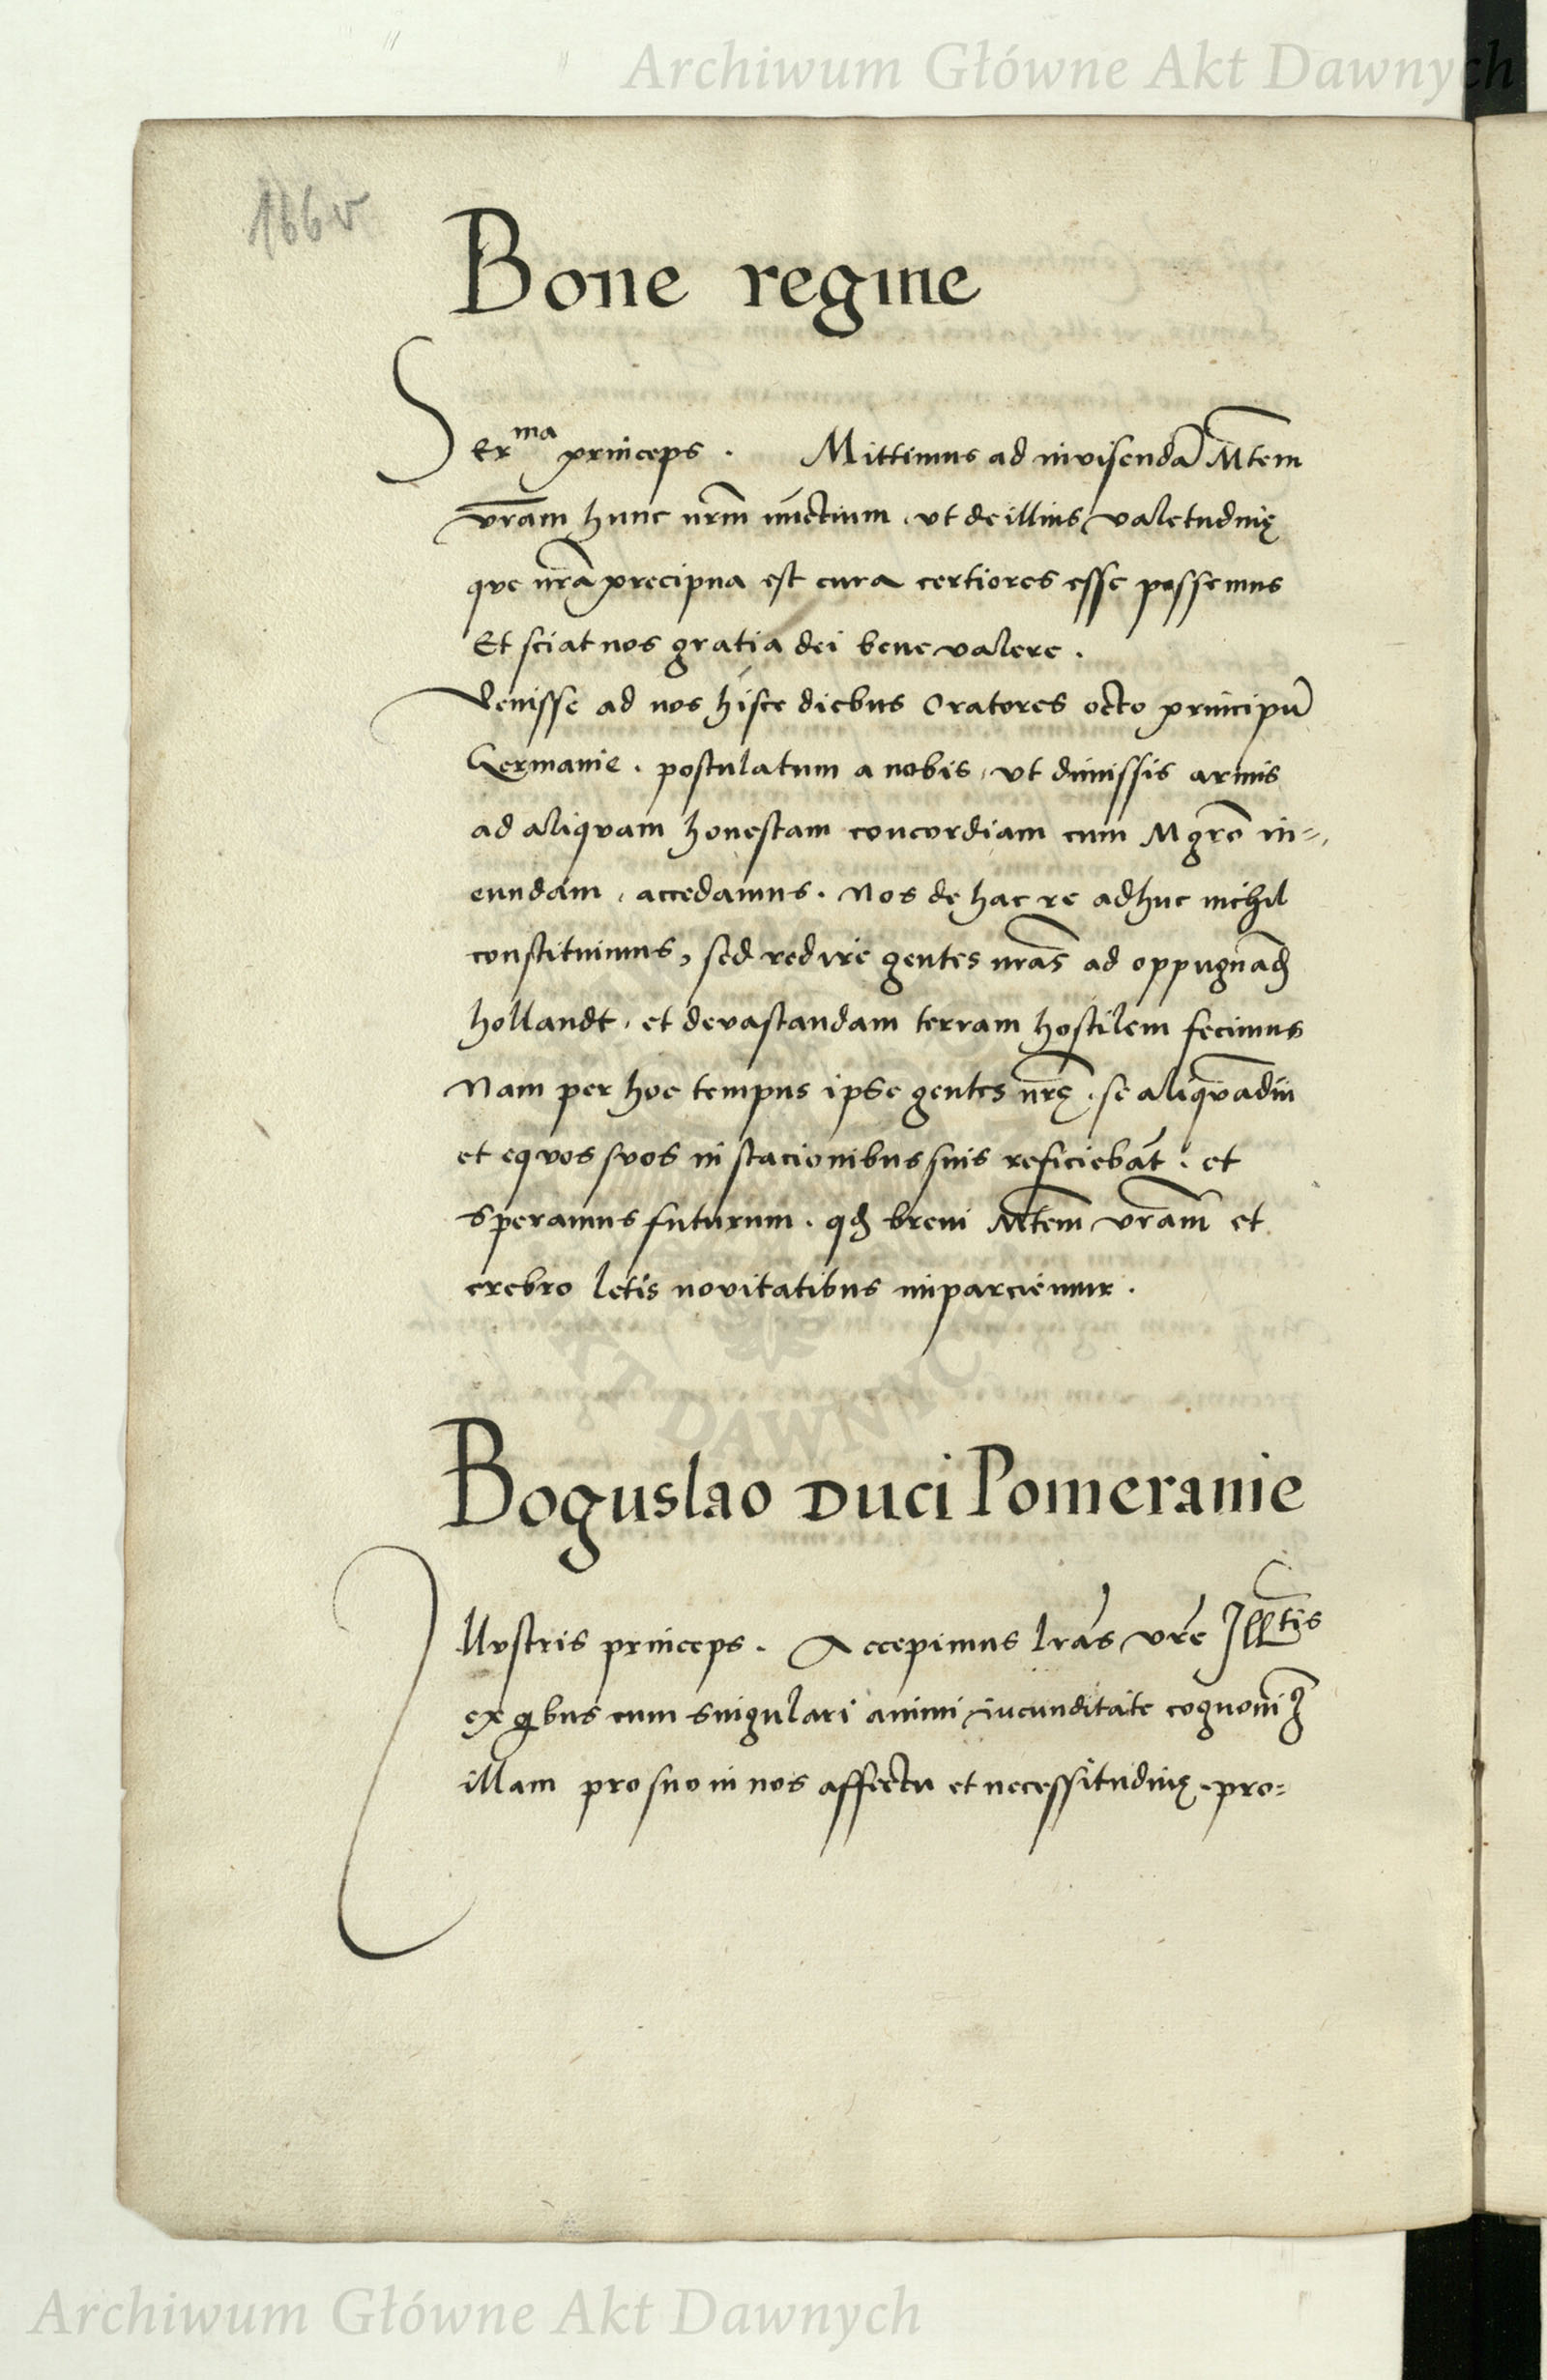 Archiwum Główne Akt Dawnych
166v
Bone regine
Serma princeps . Mittimus ad invisendā Mtem
vram hunc nrm nūctium , vt de illius valetudinę
que nrā precipua est cura certiores esse possemus
Et sciat nos gratia dei bene valere .
Venisse ad nos hisce diebus Oratores octo principū
Germanie . postulatum a nobis , vt dimissis armis
ad aliquam honestam concordiam cum Mgro in=
eundam , accedamus . Nos de hac re adhuc nichil
constituimus, sed redire gentes nras ad oppugnād
hollandt , et devastandam terram hostilem fecimus
Nam per hoc tempus ipse gentes nrę . se aliqvādiu
et eqvos svos in stacionibus suis reficiebāt . et
speramus futurum . qd brevi Mtem vram et
crebro letis novitatibus imparciemur .
Boguslao Duci Pomeranie
Illvstris princeps . Accepimus lras vre Illtis
ex qbus cum singulari animi iucunditate cognovimq
illam pro suo in nos affectu et necessitudinę . pro=
KT DAWNYC
Archiwum Główne Akt Dawnych